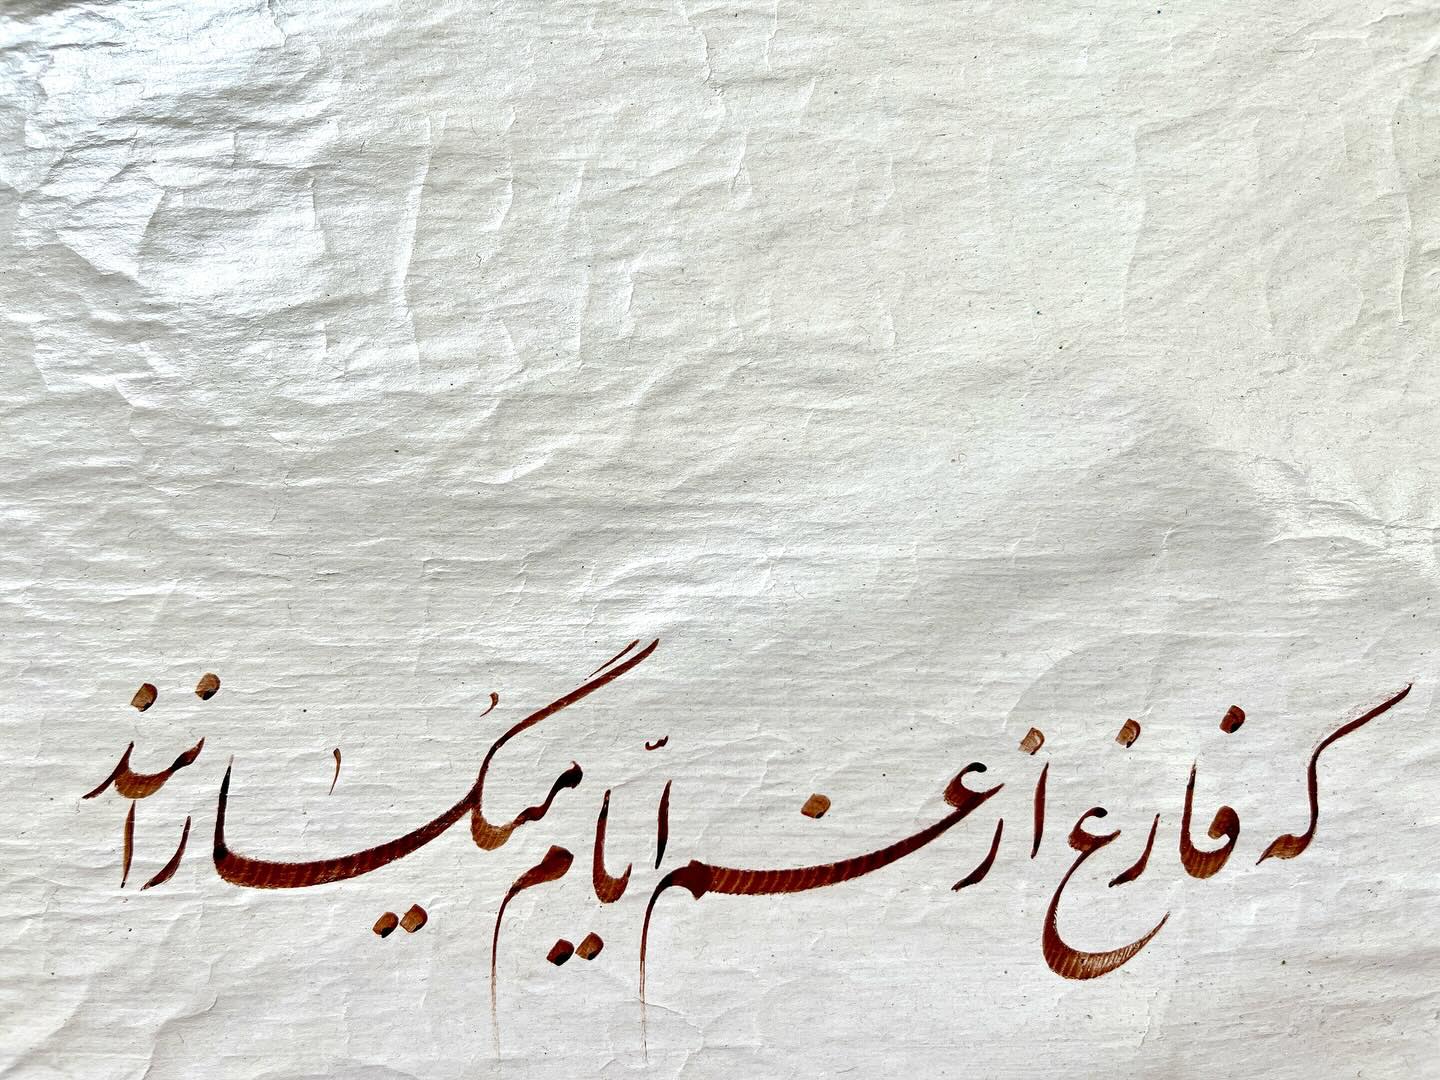 که فارغ از غم ایّام میگُسارانند